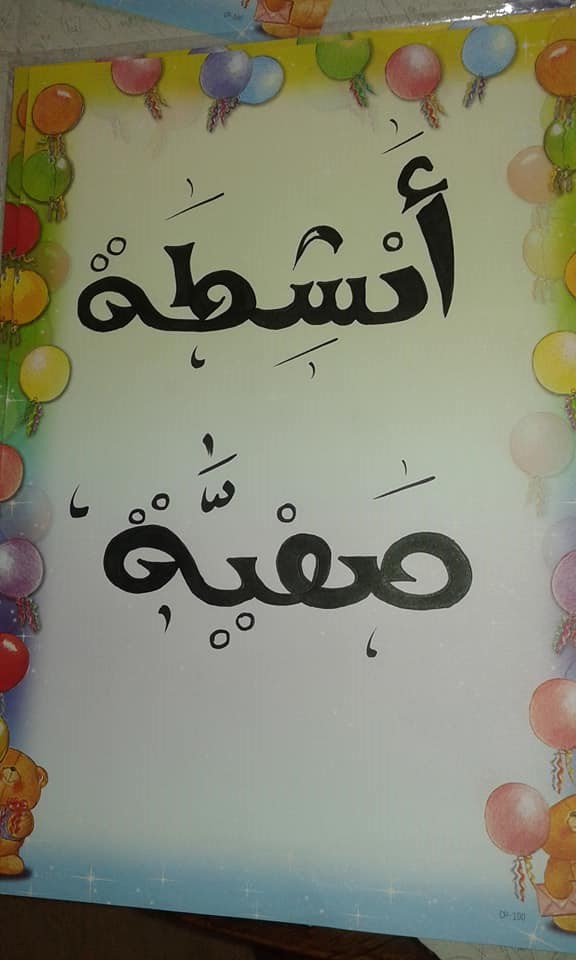 أَنْشِطَة
صَفيَّة
CP-100